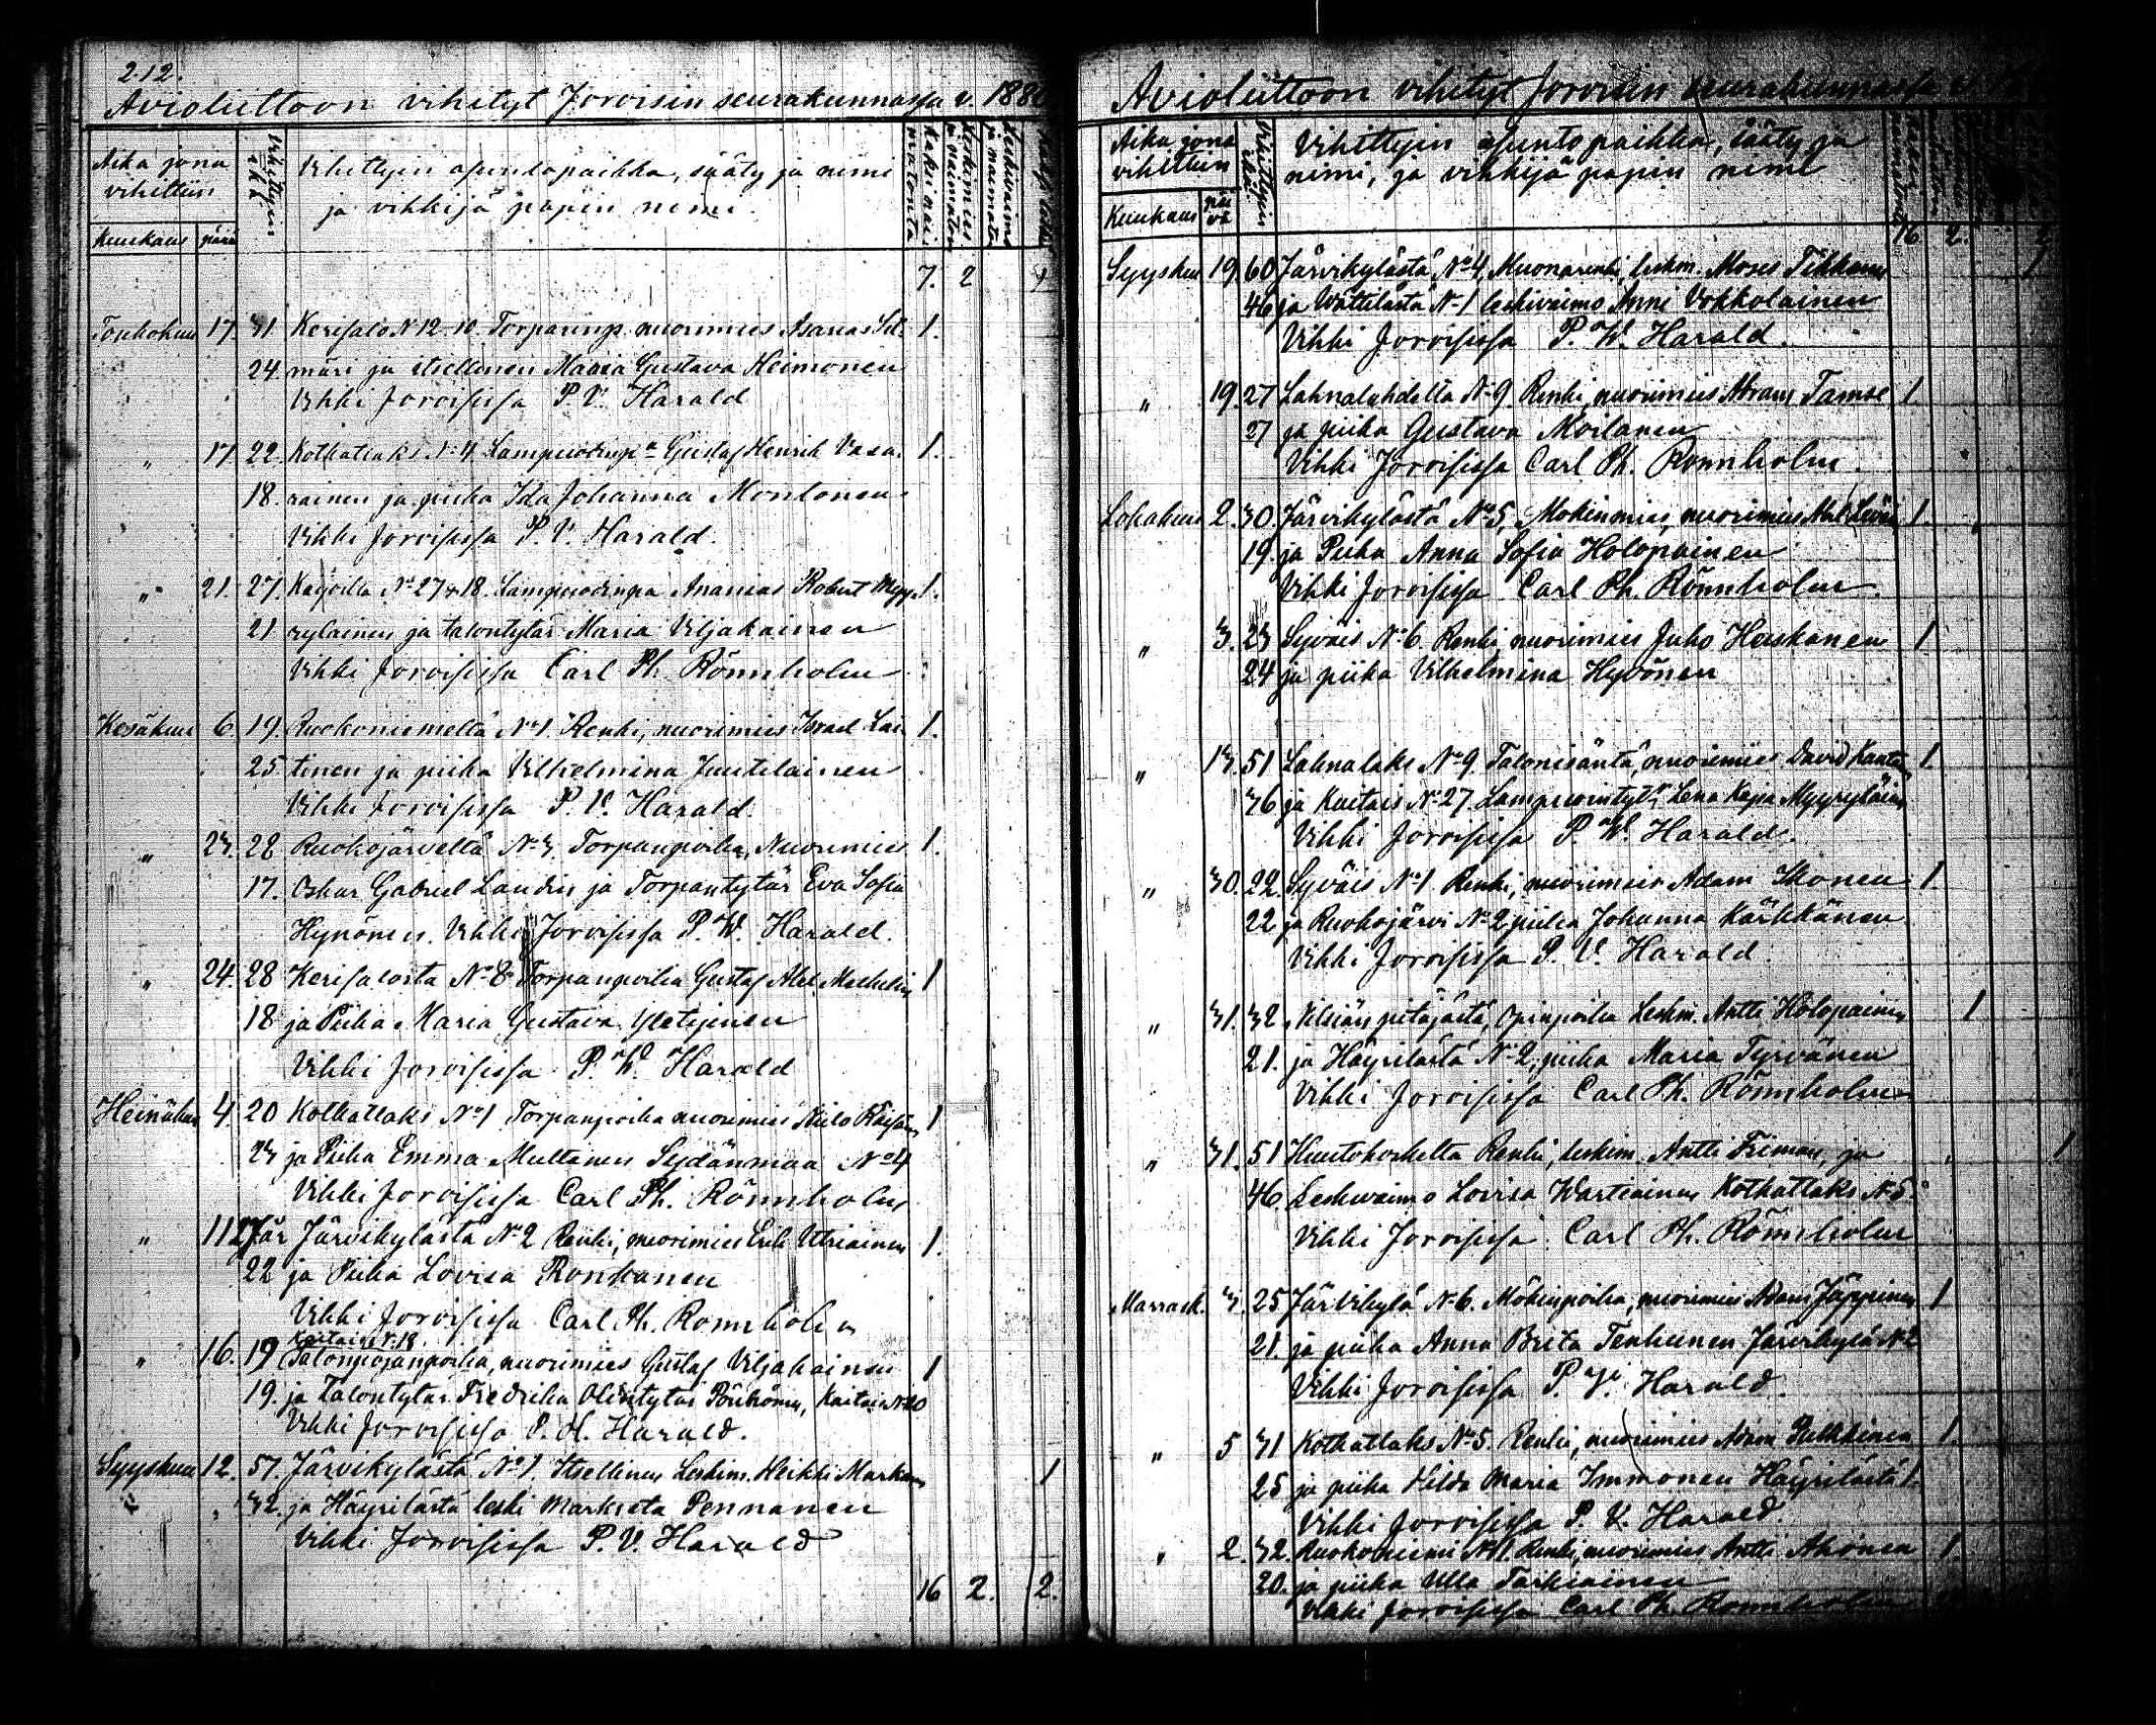 212.
Avioliittoon vihityt Joroisin seurakunnassa v. 188
Aika jona vihittiin
Vihittyin ikä
Vihittyin asuntopaikka, sääty ja nimi
ja vihkijä papin nimi.
Kuukaus päivä
7. 2
Toukokuu 17. 31 Kerisalo N 12. 10. Torparinp. nuorimies Asarias Sil- 1.
24. märi ja itsellinen Maria Gustava Heimonen
Vihki Joroisissa P. V. Harald
" 17 22. Kotkatlaks No 4 Lampuodinp. Gustaf Henrik Vasa- 1.
18. rainen ja piika Ida Johanna Montonen
Vihki Joroisissa P. V. Harald.
" 21. 27. No 27 & 18. Lampuodinpa Ananias Robert Myy- 1.
21 rylainen ja talontytär Maria Viljakainen
Vihki Joroisissa Carl Ph. Rönnholm
Kesäkuu 6. 19. Ruokoniemeltä No 1. Renki, nuorimies Israel Lai- 1.
25 tinen ja piika Vilhelmina Juutilainen
Vihki Joroisissa P. V. Harald.
" 23. 28 Ruokojärveltä No 3. Torpanpoika, Nuorimies 1.
17. Oskar Gabriel Laudin ja Torpantytär Eva Sofia
Hynönen. Vihki Joroisissa P. W. Harald.
" 24. 28 Kerisalosta No 8 Torpanpoika Gustaf Alex. 1
18 ja Piika Maria Gustava
Vihki Joroisissa P. W. Harald
Heinäkuu 4. 20 Kotkatlaks No 1 Torpanpoika nuorimies Niilo Räisänen 1
23 ja Piika Emma Multanen Sydänmaa No 4
Vihki Joroisissa Carl Ph. Rönnholm
" 11 27 Järvikylästä No 2 Renki, nuorimies Erik Utriainen 1.
22 ja Piika Lovisa Ronkanen
Vihki Joroisissa Carl Ph. Ronnholm
Kaitais N. 18.
" 16. 19 poika, nuorimies Gustaf Viljakainen 1
19. ja talontytär Fredrika Olintytär Pöyhönen, Kaitais N 20
Vihki Joroisissa P. H. Harald.
Syyskuu 12. 57. Järvikylästä No 1. Itsellinen Leskim. Heikki Markanen 1
" 32. ja Häyrilästä leski Markreta Pennanen
Vihki Joroisissa P. V. Harald
16 2. 2.
Avioliittoon vihityt Joroisin seurakunnassa v.
Aika jona vihittiin
Vihittyin ikä
Vihittyin asuntopaikka, sääty ja
nimi, ja vihkijä papin nimi
Kuukaus päivä
16 2. 2
Syyskuu 19. 60 Järvikylästä No 4, Muonarenki, leskm. Moses Tikkanen 1
46 ja Wättilästä No 1 leskivaimo Anni Vokkolainen
Vihki Joroisissa P. W. Harald.
" 19. 27 Lahnalahdelta No 9. Renki, nuorimies Abram Tamse 1.
27 ja piika Gustava Moilanen
Vihki Joroisissa Carl Ph. Ronnholm.
Lokakuu 2. 30. Järvikylästä No 5, Mökinmies, nuorimies 1.
19 ja Piika Anna Sofia Holopainen
Vihki Joroisissa Carl Ph. Rönnholm.
" 3. 23 Syväis No 6. Renki, nuorimies Juho Heiskanen 1.
24 ja piika Vilhelmina Hyvönen
" 13. 51 Lahnalaks No 9. Talonisäntä, nuorimies David 1
36 ja Kaitais No 27 Lampuorintyt. Lena Kajsa Myyryläinen
Vihki Joroisissa P. W. Harald.
" 30. 22. Syväis No 1 Renki, nuorimies Adam Ikonen 1.
22 ja Ruokojärvi No 2 piika Johanna Kärkkänen
Vihki Joroisissa P. V. Harald.
" 31. 32. pitäjästä, Leskm. Antti Holopainen 1
21. ja Häyrilästä No 2, piika Maria Tyrvänen
Vihki Joroisissa Carl Ph. Rönnholm
" 31. 51 Huutokoskelta Renki, leskim. Antti Friman, ja 1
46. Leskvaimo Lovisa Wartiainen Kotkatlaks No 5.
Vihki Joroisissa Carl Ph. Rönnholm
Marrask. 3. 25 Järvikylä No 6. Mökinpoika, nuorimies Adam Jäppinen 1
21. ja piika Anna Brita Tenhunen Järvikylä No 2
Vihki Joroisissa P. W. Harald.
" 5 31 Kotkatlaks No 5. Renki, nuorimies Adam Pulkkinen 1.
25 ja piika Hilda Maria Immonen Häyrilästä 1.
Vihki Joroisissa P. V. Harald.
" 2. 32. Ruokoniemi No 1. Renki, nuorimies Antti Ahonen 1.
20. ja piika Ulla Tarkiainen
Vihki Joroisissa Carl Ph. Ronnholm